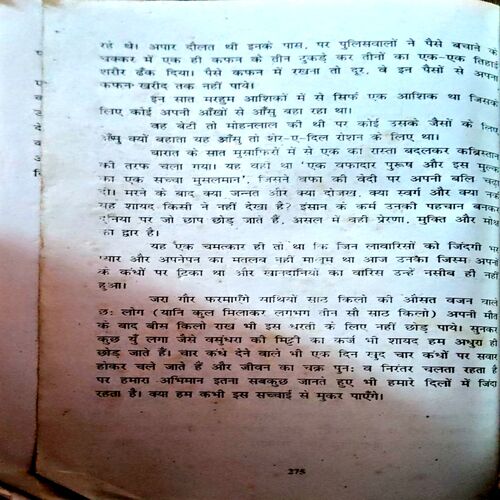 रहे थे। अपार दौलत थी इनके पास, पर पुलिसवालों ने पैसे बचाने के
चक्कर में एक ही कफन के तीन टुकड़े कर तीनों का एक-एक तिहाई
शरीर ढँक दिया। पैसे कफन में रखना तो दूर, वे इन पैसों से अपना
कफन खरीद तक नहीं पाये।
इन सात मरहूम आशिकों में से सिर्फ एक आशिक था जिसके
लिए कोई अपनी आँखों से आँसू बहा रहा था।
वह बेटी तो मोहनलाल की थी पर कोई उसके जैसों के लिए
आँसू क्यों बहाता यह आँसू तो शेर-ए-दिल रोशन के लिए था।
बारात के सात मुसाफिरों में से एक का रास्ता बदलकर कब्रिस्तान
की तरफ चला गया। यह वहां था 'एक वफादार पुरूष और इस मुल्क
का एक सच्चा मुसलमान', जिसने वफा की वेदी पर अपनी बलि चढ़ा
दी। मरने के बाद क्या जन्नत और क्या दोजख, क्या स्वर्ग और क्या नर्क
यह शायद किसी ने नहीं देखा है? इंसान के कर्म उनकी पहचान बनकर
दुनिया पर जो छाप छोड़ जाते हैं, असल में वही प्रेरणा, मुक्ति और मोक्ष
का द्वार है।
यह एक चमत्कार ही तो था कि जिन लावारिसों को जिंदगी भर
प्यार और अपनेपन का मतलब नहीं मालूम था आज उनका जिस्म अपनों
के कंधों पर टिका था और खानदानियों का वारिस उन्हें नसीब ही नहीं
हुआ।
जरा गौर फरमाएँगे साथियों साठ किलो की औसत वजन वाले
छः लोग (यानि कुल मिलाकर लगभग तीन सौ साठ किलो) अपनी मौत
के बाद बीस किलो राख भी इस धरती के लिए नहीं छोड़ पाये। सुनकर
कुछ यूँ लगा जैसे वसुंधरा की मिट्टी का कर्ज भी शायद हम अधुरा ही
छोड़ जाते हैं। चार कंधे देने वाले भी एक दिन खुद चार कंधों पर सवार
होकर चले जाते हैं और जीवन का चक्र पुनः व निरंतर चलता रहता है
पर हमारा अभिमान इतना सबकुछ जानते हुए भी हमारे दिलों में जिंदा
रहता है। क्या हम कभी इस सच्चाई से मुकर पाएँगे।
275